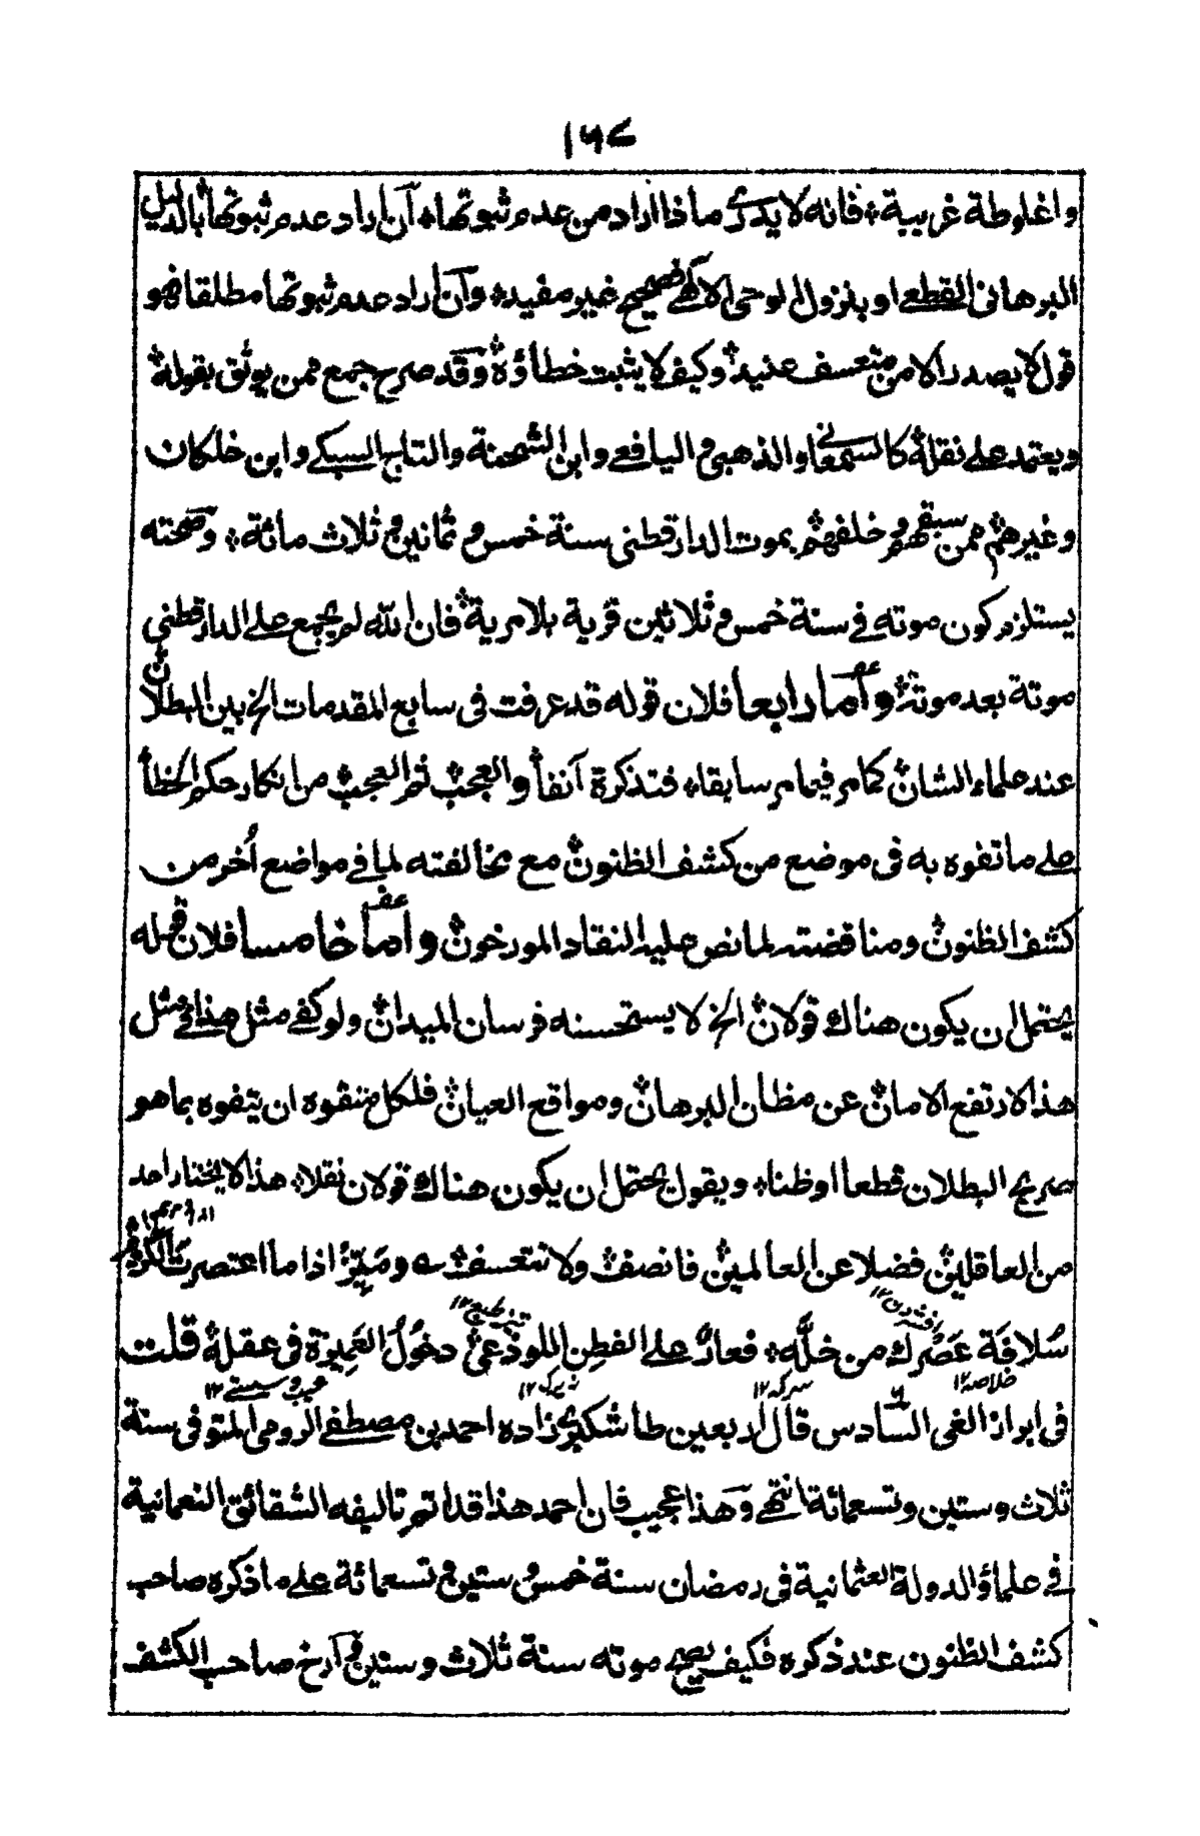 ١٦٧
واغلوطة غريبة؞ فانه لا يدرى ماذا اراد من عدم ثبوتها؞ آن اراد عدم ثبوتها بالدليل
البرهانى القطعے او بنزول الوحى الالٰهے فصحيح غير مفيد؞ وآن اراد عدم ثبوتها مطلقا فهو
قول لا يصدر الا من متعسف عنيد؞ وكيف لا يثبت خطاؤه؞ وقد صرح جمع ممن يوثق بقوله؞
ويعتمد علے نقله؞ كالسمعانے والذهبى واليافعے وابن الشحنة والتاج السبكے وابن خلكان
وغيرهم؞ ممن سبقهم وخلفهم؞ بموت الدارقطنى سنة خمس وثمانين وثلاث مائة؞ وصحته
يستلزم كون موته فے سنة خمس وثلاثين فرية بلا مرية؞ فان الله لم يجمع علے الدارقطنى
موتة بعد موتة؞ وأما رابعا فلان قوله قد عرفت فى سابع المقدمات الخ بين البطلان؞
عند علماء الشان؞ كما مر فيما مر سابقا؞ فتذكرة آنفا؞ والعجب؞ ثم العجب؞ من انكار حكم الخطأ؞
علے ما تفوه به فى موضع من كشف الظنون؞ مع مخالفته لما فے مواضع اُخر من
كشف الظنون؞ ومناقضته لما نص عليه النقاد المورخون؞ وأما خامسا فلان قوله
يحتمل ان يكون هناك قولان؞ الخ لا يستحسنه فرسان الميدان؞ ولو كفے مثل هذا فے مثل
هذا لارتفع الامان؞ عن مظان البرهان؞ ومواقع العيان؞ فلكل متفوه ان يتفوه بما هو
صريح البطلان قطعا او ظنا؞ ويقول يحتمل ان يكون هناك قولان نقلا؞ هذا لا يختاره احد
من العاقلين؞ فضلا عن العالمين؞ فانصف؞ ولا تتعسف؞ ے ومَيِّزْ اذا ما اعتصرتَ الكرم؞
سُلافَة عَصْرِك من خلَّه؞ فعارٌ علے الفطِن اللوذعىّ؞ دخولُ الغميزة فى عقله؞ قلت
فى ابراز الغى السادس قال اربعين طاشكبرى زاده احمد بن مصطفے الرومى المتوفى سنة
ثلاث وستين وتسعمائة انتهٰے وهذا عجيب فان احمد هذا قد اتم تاليفه الشقائق النعمانية
فے علماؤ الدولة العثمانية فى رمضان سنة خمس وستين وتسعمائة علے ما ذكره صاحب
كشف الظنون عند ذكره فكيف يصح موته سنة ثلاث وستين وآرخ صاحب الكشف